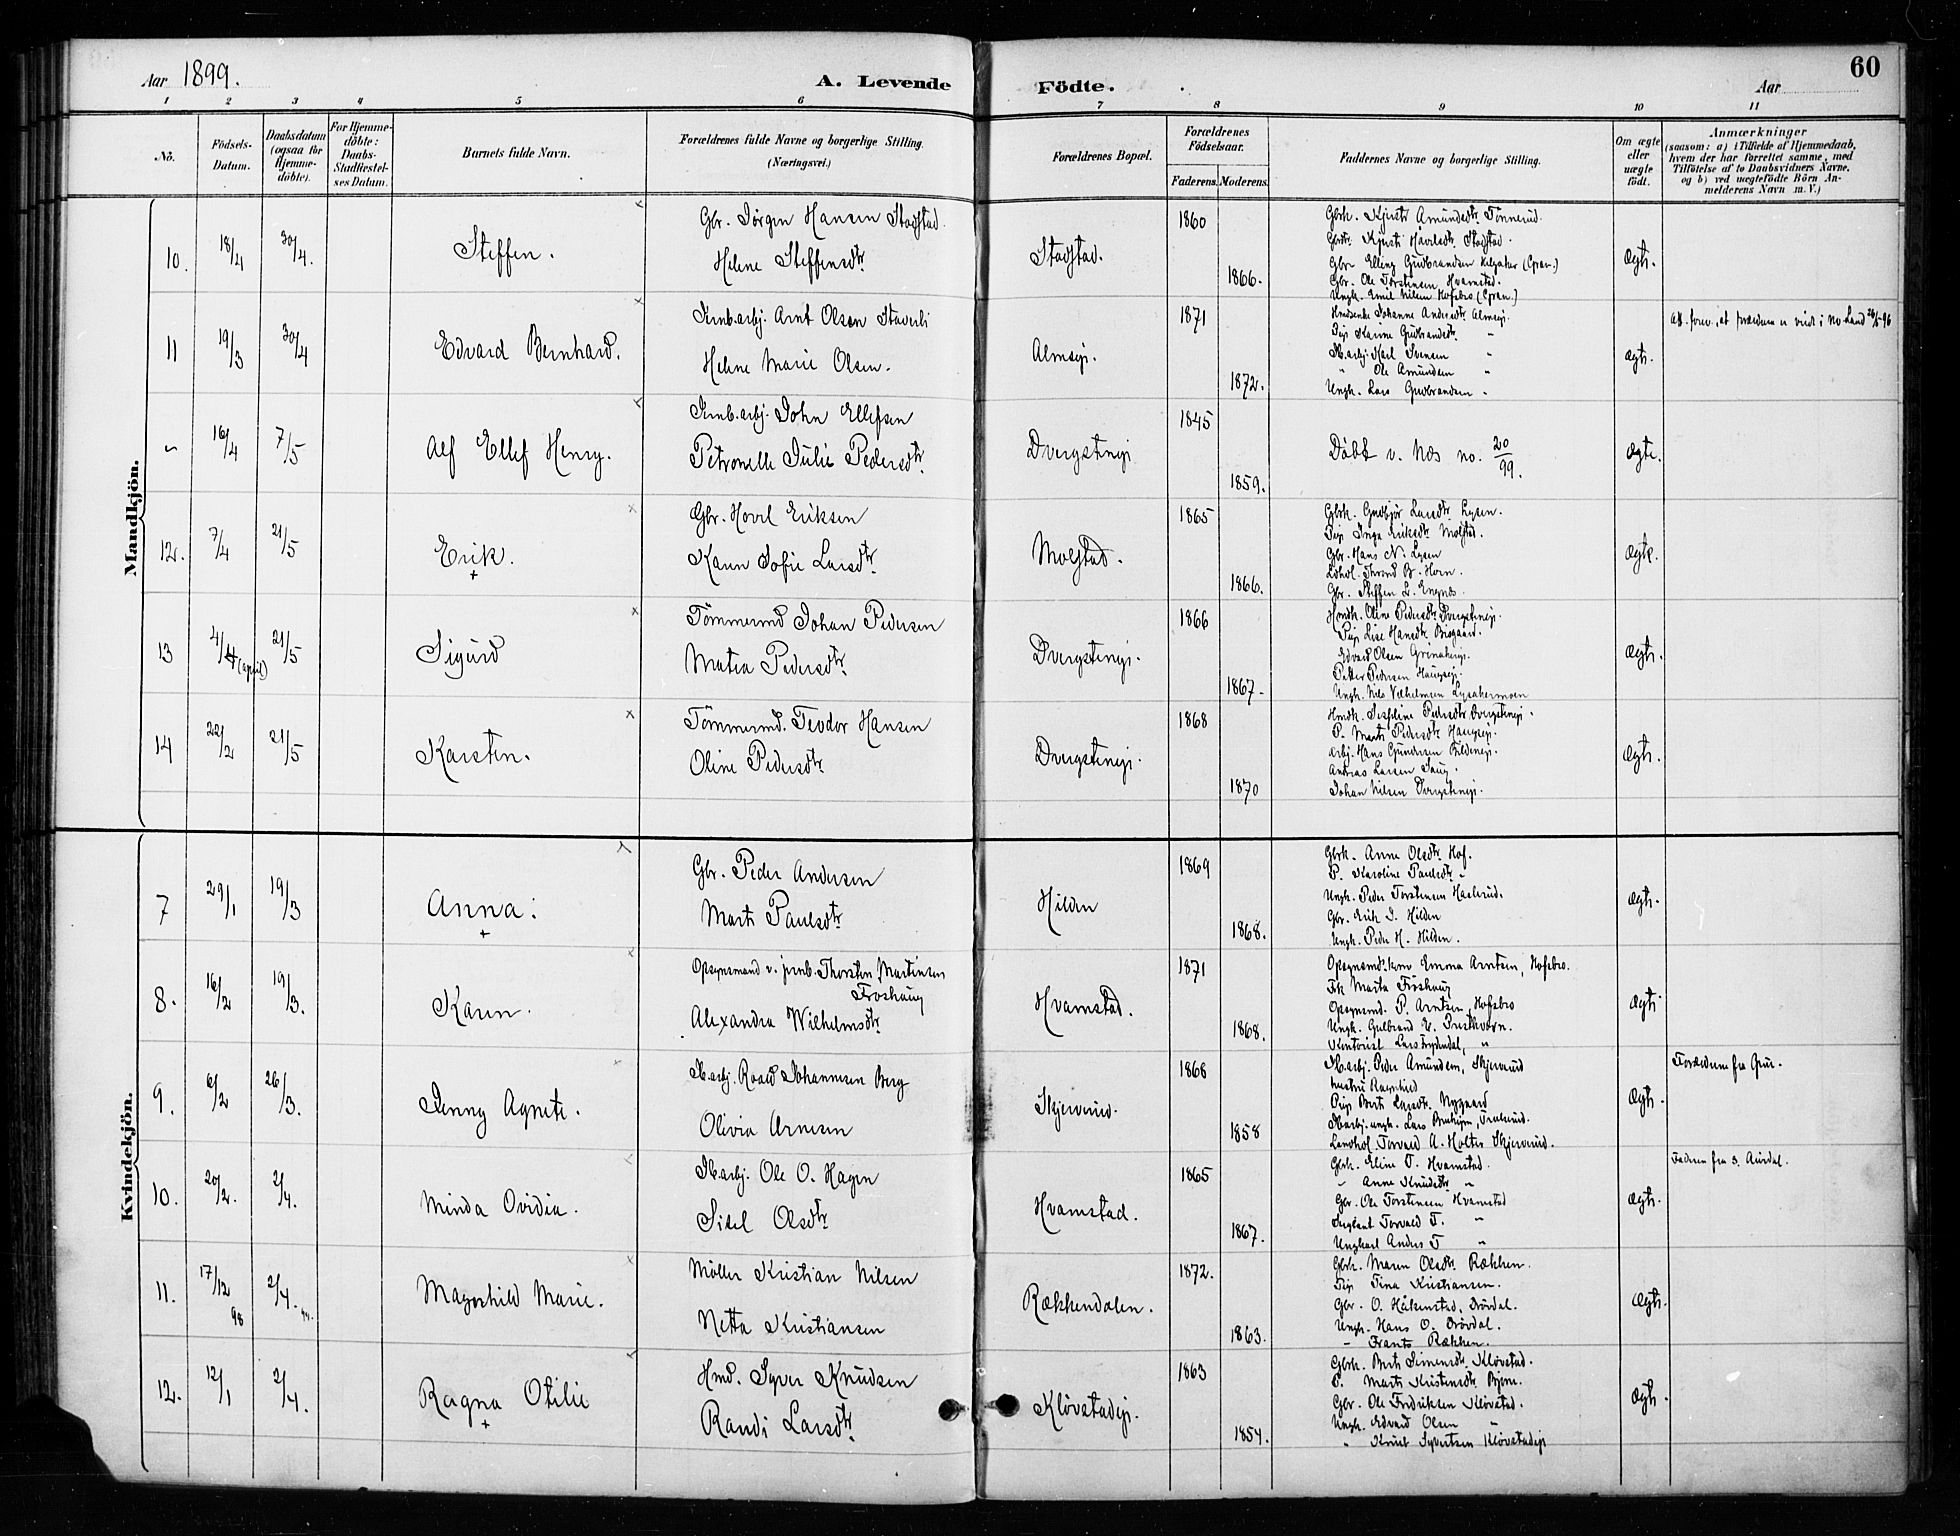 Aar 1899.
A. Levende
Födte.
Aar
60
1 2 3 4 5 6 7 8 9 10 11
No.
Födsels-Datum.
Daabsdatum (ogsaa for Hjemme-döbte).
For Hjemme-döbte: Daabs-Stadfæstel-ses Datum.
Barnets fulde Navn.
Forældrenes fulde Navne og borgerlige Stilling. (Næringsvei.)
Forældrenes Bopæl.
Forældrenes Födselsaar.
Faderens. Moderens.
Faddernes Navne og borgerlige Stilling.
Om ægte eller uægte födt.
Anmærkninger
(saasom: a) i Tilfælde af Hjemmedaab,
hvem der har forrettet samme, med
Tilföielse af to Daabsvidners Navne,
og b) ved uægtefödte Börn An-
melderens Navn m. V.)
Mandkjön.
10. 18/4 30/4. Steffen.
Gbr. Jörgen Hansen Stadstad.
Helene Steffensdtr.
Stadstad. 1860 1866.
Gbrk. Kjersti Amundsdtr. Tönnerud.
Kjersti Havelsdtr. Stadstad.
Gbr. Elling Gudbrandsen (Gran.)
Gbr. Ole Torstensen Hvamstad.
Ungk. Emil Nilsen Hofsbro (Gran.)
Ægte.
11 19/3 30/4 Edvard Bernhard.
Jernb.arbj. Arnt Olsen Staverli
Helene Marie Olsen.
Almseje. 1871 1872.
Johanne Andersdtr. Almseje.
Pige Karine Gudbrandsdtr. "
Karl Svensen "
" Ole Amundsen "
Ungk. Lars Gudbrandsen "
ægte.
" 16/4 7/5 Alf Ellef Henry.
Jernb.arbj. John Ellefsen
Petronelle Julie Pedersdtr.
Dvergsteneje 1845 1859.
Döbt v. Næs no. 20/99.
Ægte.
12. 7/4 21/5 Erik. +
Gbr. Hovel Eriksen
Karen Sofie Larsdtr.
Molstad. 1865 1866.
Gbrk. Gudbjör Larsdtr. Lysen.
Pige Inga Eriksdtr. Molstad.
Gbr. Hans N. Lysen
Trond B. Horn.
Gbr. Steffen L. Engnæs.
Ægte.
13 4/4 (april) 21/5 Sigurd
Tömmermd Johan Pedersen
Matea Pedersdtr.
Dvergsteneje. 1866 1867.
Hmdk. Oline Pedersdtr. Dvergsteneje.
Pige Lise Hansdtr.
Edvard Olsen
Petter Pedersen Haugseje.
Ungk. Nils Vilhelmsen Lysakermoen
Ægte.
14 22/2 21/5 Karsten.
Tömmermd. Teodor Hansen
Oline Pedersdtr.
Dvergsteneje. 1868 1870
Hmdk. Josefine Pedersdtr Dvergsteneje.
P. Marte Pedersdtr. Haugseje.
Arbj. Hans Gundersen
Andreas Larsen
Johan Nilsen Dvergsteneje.
Ægte.
Kvindekjön.
7 29/1 19/3 Anna. +
Gbr. Peder Andersen
Marte Paulsdtr
Hilden 1869 1868.
Gbrk. Anne Olsdtr. Hof.
P. Karoline Paulsdtr. "
Ungk. Peder Torstensen Haslerud.
Gbr. Erik J. Hilden
Ungk. Peder H. Hilden.
Ægte.
8. 16/2 19/3. Karen.
Opsynsmand v. jernb. Thorsten Martinsen Froshaug
Alexandra Wilhelmsdtr.
Hvamstad. 1871 1868.
Emma Arntsen, Hofsbro.
Frk Marta Fröshaug
Opsynsmd. P. Arntsen, Hofsbro
Ungk. Gulbrand E. Prestkværn.
Kontorist Lars Frydendal, "
Ægte
9. 6/2 26/3. Jenny Agnete.
Roald Johannesen Berg
Olivia Arnesen
Skjerverud. 1868 1858
Peder Amundsen, Skjerverud
hustru Ragnhild
Pige Berte Larsdtr. Nygaard
Torvald A. Holter Skjerverud.
Ægte.
Forældrene fra Grue.
10. 20/2. 2/4. Minda Ovidia.
Ole O. Hagen
Sidsel Olsdtr.
Hvamstad. 1865 1867.
Gbrk. Eline T. Hvamstad.
" Anne Knudsdtr "
Gbr. Ole Torstensen Hvamstad
Torvald T. "
Ungkarl Anders T "
Ægte.
Faderen fra S. Aurdal.
11. 17/12 98 2/4. 99. Magnhild Marie.
Möller Kristian Nilsen
Netta Kristiansen
Rækkendalen. 1872. 1863.
Gbrk. Maren Olsdtr. Rækken.
Pige Tina Kristiansen.
Gbr. O. Håkenstad, Drövdal.
Ungk. Hans O. Drövdal.
" Frants Rækken.
Ægte.
12. 12/1 2/4. Ragna Otilie +
Hmd. Syver Knudsen
Randi Larsdtr.
Klövstadeje. 1863 1854.
Gbrk. Berte Simensdtr. Klövstad.
P. Marte Kristensdtr. Bjerne.
Gbr. Ole Fredriksen Klövstad.
Ungk. Edvard Olsen "
" Knut Syvertsen Klövstadeje
Ægte.